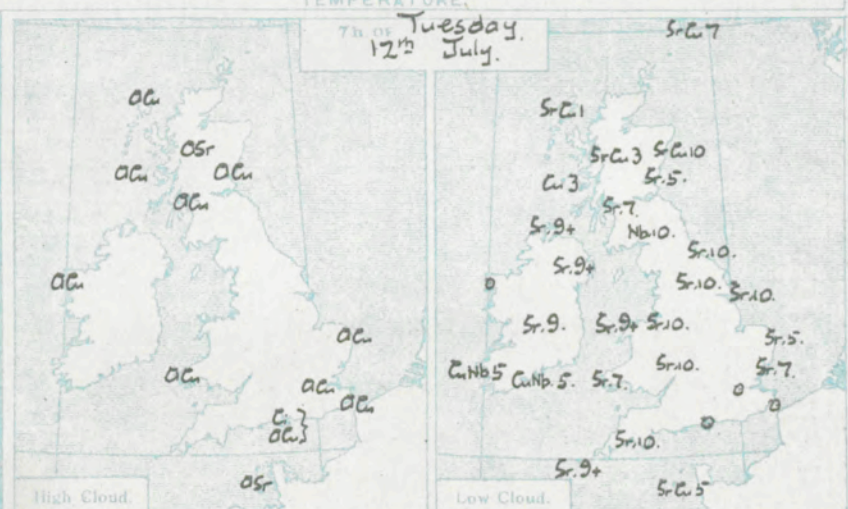 TEMPERATURE.
7h. OF Tuesday.
12th July.
ACu
ASr
ACu
ACu
ACu
ACu
ACu
ACu
ACu
ACu
Ci
ACu
ASr
High Cloud.
SrCu 7
SrCu 1
SrCu 3
SrCu 10
Cu 3
Sr. 5.
Sr. 7.
Sr. 9+
Nb. 10.
Sr. 10.
Sr. 9+
Sr. 10.
Sr. 10.
Sr. 9.
Sr. 9+
Sr. 10.
Sr. 5.
CuNb 5
CuNb. 5.
Sr. 7.
Sr. 10.
Sr. 7.
Sr. 10.
Sr. 9+
SrCu 5
Low Cloud.